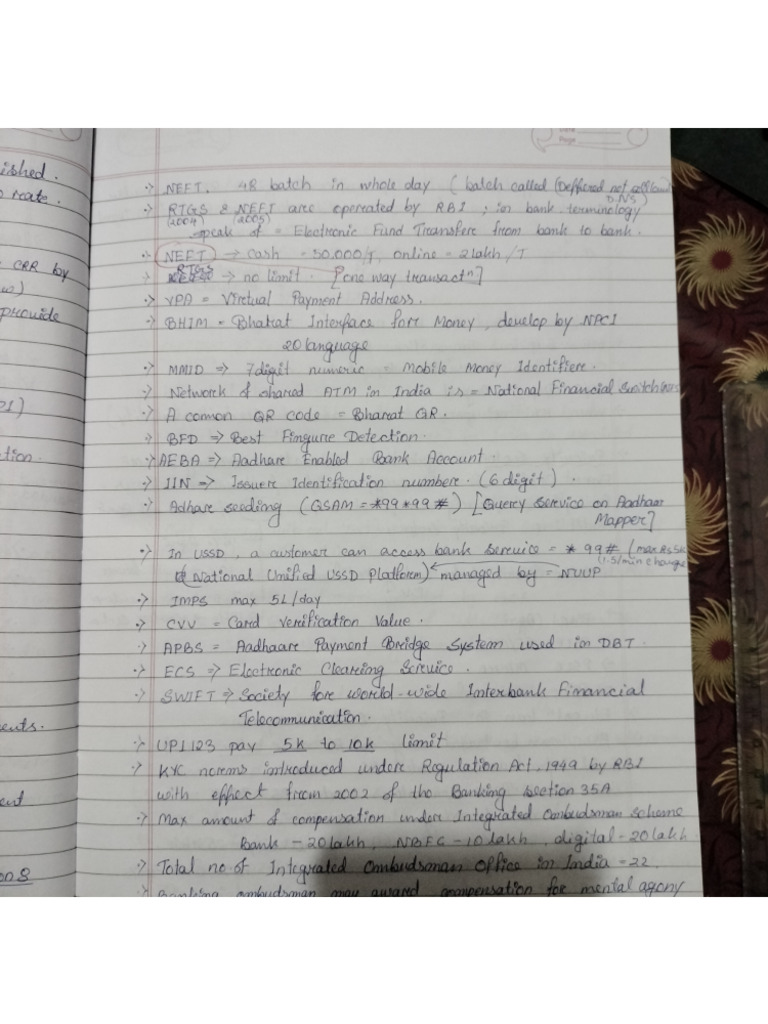 ished.
rate.
CRR by
provide
tion.
ents.
ent
Page
:-) NEFT. 48 batch in whole day ( batch called (Deffered net
D.N.S)
:-) RTGS & NEFT are operated by RBI ; in bank terminology
(2004) (2005)
speak of = Electronic Fund Transfer from bank to bank.
:-) NEFT → cash = 50,000/T, online = 2 lakh /T
RTGS
:-) → no limit. [one way transactⁿ]
:-) VPA = Virtual Payment Address.
:-) BHIM = Bharat Interface for Money, develop by NPCI
20 language
:-) MMID => 7 digit numeric = Mobile Money Identifier.
:-) Network of shared ATM in India is = National Financial Switch
:-) A common QR code = Bharat QR.
:-) BFD => Best Fingure Detection.
:-) AEBA => Aadhare Enabled Bank Account.
:-) IIN => Issuer Identification number. (6 digit).
:-) Adhare seeding (QSAM = *99*99#) [Query Service on Aadhaar
Mapper]
:-) In USSD, a customer can access bank service = *99# (max Rs 5k
(National Unified USSD Platform) managed by = NUUP
:-) IMPS max 5L/day
:-) CVV = Card Verification Value.
:-) APBS = Aadhaare Payment Bridge System used in DBT.
:-) ECS => Electronic Clearing Service.
:-) SWIFT => Society for world-wide Interbank Financial
Telecommunication.
:-) UPI 123 pay 5k to 10k limit
:-) KYC norms introduced under Regulation Act, 1949 by RBI
with effect from 2002 of the Banking section 35A
:-) Max amount of compensation under Integrated Ombudsman Scheme
Bank - 20 lakh, NBFC - 10 lakh, digital - 20 lakh
:-) Total no of Integrated Ombudsman Office in India = 22.
:-) Banking ombudsman may award compensation for mental agony